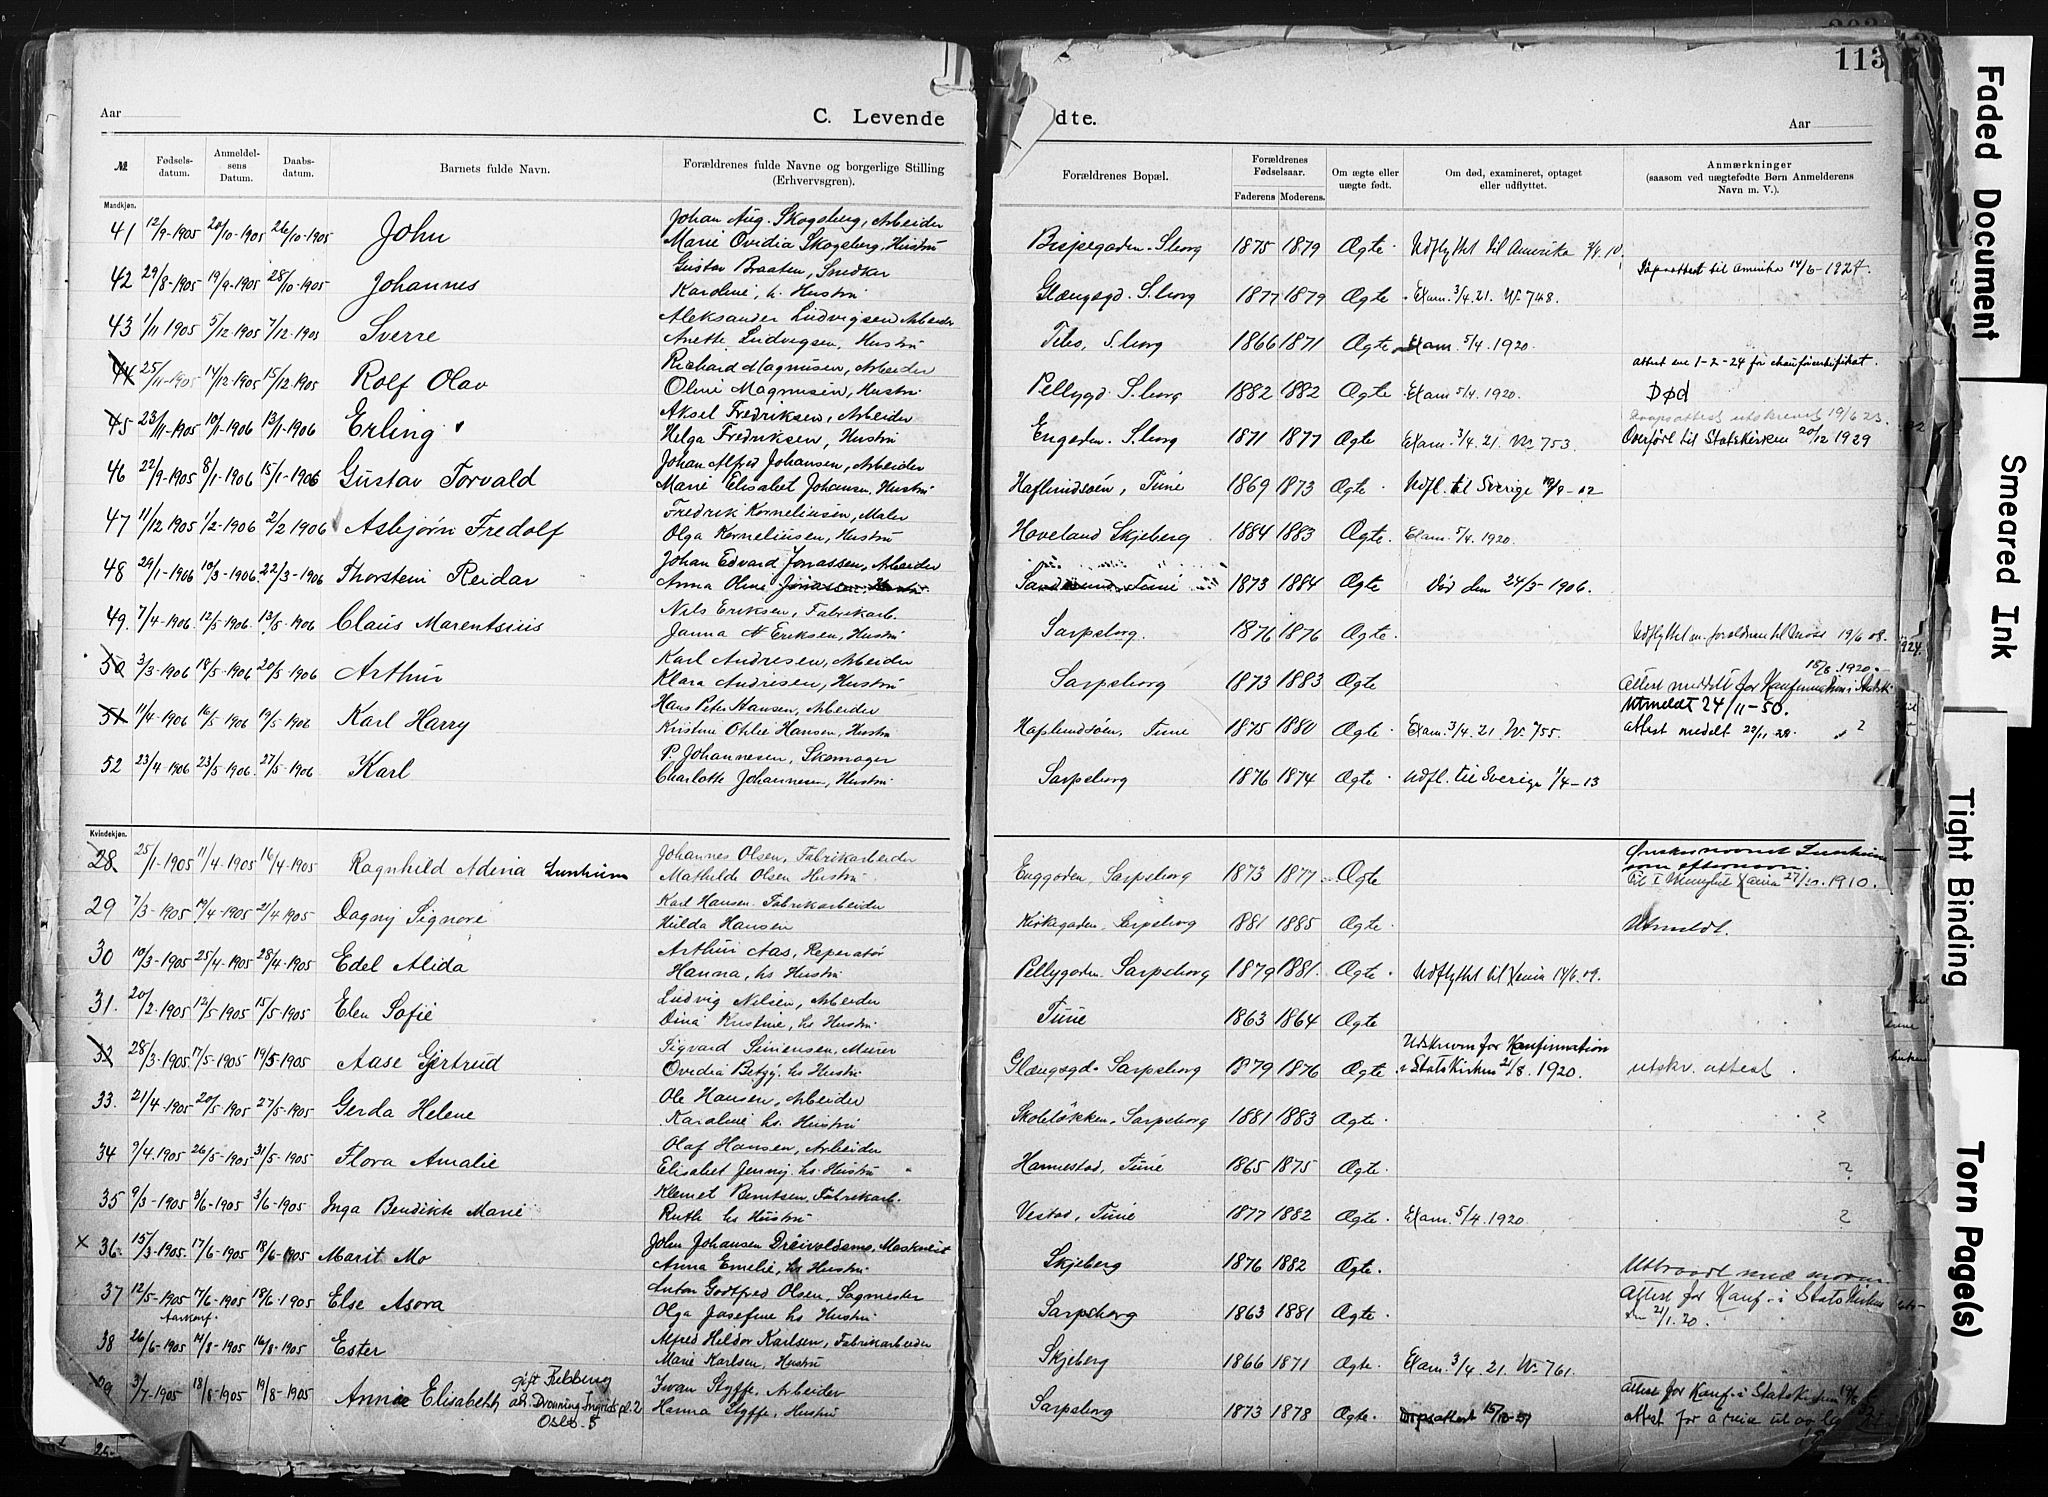 113
Aar
C. Levende
dte.
Aar
№. Fødsels-datum. Anmeldel-sens Datum. Daabs-datum. Barnets fulde Navn. Forældrenes fulde Navne og borgerlige Stilling (Erhvervsgren). Forældrenes Bopæl. Forældrenes Fødselsaar. Faderens Moderens. Om ægte eller uægte født. Om død, examineret, optaget eller udflyttet. Anmærkninger (saasom ved uægtefødte Børn Anmelderens Navn m. V.).
Mandkjøn.
41 12/9-1905 20/10-1905 26/10-1905 John Johan Aug. Skogsberg, Arbeider
Marie Ovidia Skogsberg, Hustru Bispegaden. S.borg 1875 1879 Ægte Udflyttet til Amerika
Daapsattest til Amerika 14/6-1927.
42 29/8-1905 19/9-1905 28/10-1905 Johannes Gustav Braaten, Snedker
Karoline, h. Hustru Glengsgd. S.borg 1877 1879 Ægte Exam. 3/4.21. № 748.
43 1/11 1905 5/12-1905 7/12-1905 Sverre Aleksander Ludvigsen Arbeider
Anette Ludvigsen, Hustru Tebo, S.borg 1866 1871 Ægte Exam. 5/4.1920.
attest 1-2-24 for
44 25/11-1905 14/12-1905 15/12-1905 Rolf Olav Richard Magnusen, Arbeider
Oline Magnusen, Hustru Pellygd. S.borg 1882 1882 Ægte Exam 5/4.1920. Død
45 23/11-1905 10/1-1906 13/1-1906 Erling Aksel Fredriksen, Arbeider
Helga Fredriksen, Hustru Engaden. S.borg 1871 1877 Ægte Exam. 3/4.21. № 753. Overført til Statskirken 20/12 1929
46 22/9-1905 8/1-1906 15/1-1906 Gustav Torvald Johan Alfred Johansen, Arbeider
Marie Elisabet Johansen, Hustru Haflundsøen, Tune 1869 1873 Ægte Udfl. til Sverige
47 11/12-1905 1/2-1906 2/2 1906 Asbjørn Fredolf Fredrik Korneliusen, Maler
Olga Korneliusen, Hustru Hoveland Skjeberg 1884 1883 Ægte. Exam. 5/4.1920.
48 29/1-1906 10/3-1906 22/3-1906 Thorstein Reidar Johan Edvard Jonassen, Arbeider
Anna Oline Jonassen, Hustru Tune 1873 1884 Ægte Død den 24/5-1906.
49. 7/4-1906 12/5-1906 13/5-1906 Claus Marentsius Nils Eriksen, Fabrikarb.
Janna N Eriksen, Hustru Sarpsborg. 1876 1876 Ægte. Udflyttet m. foreldrene til Moss 19/6 08.
50 3/3-1906 18/5-1906 20/5-1906 Arthur Karl Andresen, Arbeider
Klara Andresen, Hustru Sarpsborg 1873 1883 Ægte 18/8 1920.
Attest meddelt for Konfirmation i Statsk.
51 11/4-1906 16/5-1906 19/5-1906 Karl Harry Hans Peter Hansen, Arbeider
Utmeldt 24/11-50.
Kristine Otilie Hansen, Hustru Haflundsøen, Tune 1875 1880 Ægte. Exam. 3/4.21. № 755. attest medelt ?
52 23/4-1906 23/5-1906 27/5-1906 Karl P. Johannesen, Skomager
Charlotte Johannesen, Hustru Sarpsborg 1876 1874 Ægte Udfl. til Sverige 1/4-13
Kvindekjøn.
28 25/1-1905 11/4-1905 16/4-1905 Ragnhild Adina Lunheim Johannes Olsen, Fabrikarbeider
Mathilde Olsen Hustru Enggaden, Sarpsborg 1873 1877 Ægte Ønsker navnet Lunheim
som efternavn
1910.
29 7/3-1905 19/4-1905 21/4-1905 Dagny Signore Karl Hansen. Fabrikarbeider
Hilda Hansen Kirkegaden, Sarpsborg 1881 1885 Ægte. Utmeldt.
30 10/3-1905 25/4-1905 28/4-1905 Edel Alida Arthur Aas, Reperatør
Hanna, hs Hustru Pellygaden. Sarpsborg 1879 1881. Ægte Udflyttet til 14/6.09.
31. 20/2-1905 12/5-1905 15/5-1905 Elen Sofie Ludvig Nilsen, Arbeider
Dina Kristine, hs Hustru Tune 1863 1864 Ægte
32 28/3-1905 17/5-1905 19/5-1905 Aase Gjertrud Sigvard Simensen, Murer
Udskreven for Konfirmation
Ovedia Betzy, hs Hustru Glengsgd. Sarpsborg 1879 1876 Ægte i Statskirken 21/8.1920. utskr. attest
33. 21/4-1905 20/5-1905 27/5-1905 Gerda Helene Ole Hansen, Arbeider
Karoline hs. Hustru Skoleløkken, Sarpsborg 1881 1883 Ægte. ?
34 9/4.1905 26/5-1905 31/5-1905 Flora Amalie Olaf Hansen, Arbeider
Elisabet Jenny. hs. Hustru Hannestad, Tune 1865 1875 Ægte ?
35 9/3-1905 3/6-1905 3/6-1905 Inga Bendikte Marie Klemet Berntsen, Fabrikarb.
Ruth hs Hustru Vestad, Tune 1877 1882 Ægte. Exam. 5/4.1920. ?
x 36. 15/3-1905. 17/6-1905 18/6-1905 Marit Mo John Johansen Dreivoldsmo, Maskinist
Anna Emelie, hs Hustru. Skjeberg 1876 1882 Ægte.
37 12/5-1905 17/6-1905 18/6-1905 Else Asora Anton Godtfred Olsen, Sagmester
Attest for Konf. i Statskirken
Olga Josefine hs Hustru Sarpsborg 1863 1881 Ægte. 21/1.20.
38 26/6-1905 14/8-1905 16/8-1905 Ester Alfred Hildor Karlsen, Fabrikarbeider
Marie Karlsen, Hustru Skjeberg 1866 1871 Ægte. Exam. 3/4.21. № 761.
39 3/7-1905 18/8-1905 19/8-1905 Annie Elisabeth gift Fubberug
adr. Dronning Ingrids pl. 2
Oslo 5
Iwan Styffe, Arbeider
Hanna Styffe, Hustru Sarpsborg 1873 1878 Ægte. Daapsattest attest for Konf. i Statskirken
attest for
Faded Document
Smeared Ink
Tight Binding
Torn Page(s)